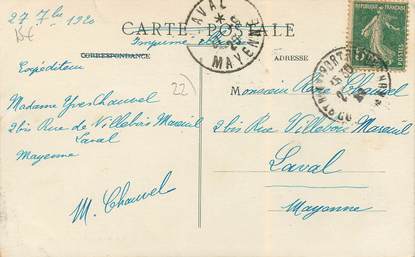 27 7bre 1920
15€
CARTE POSTALE
Imprimé
CORRESPONDANCE
ADRESSE
LAVAL
MAYENNE
RÉPUBLIQUE FRANÇAISE
22
Expéditeur
Madame Yves Chauvel
2bis Rue de Villebois Mareuil
Laval
Mayenne
M. Chauvel
Monsieur Chauvel
2bis Rue Villebois Mareuil
Laval
Mayenne